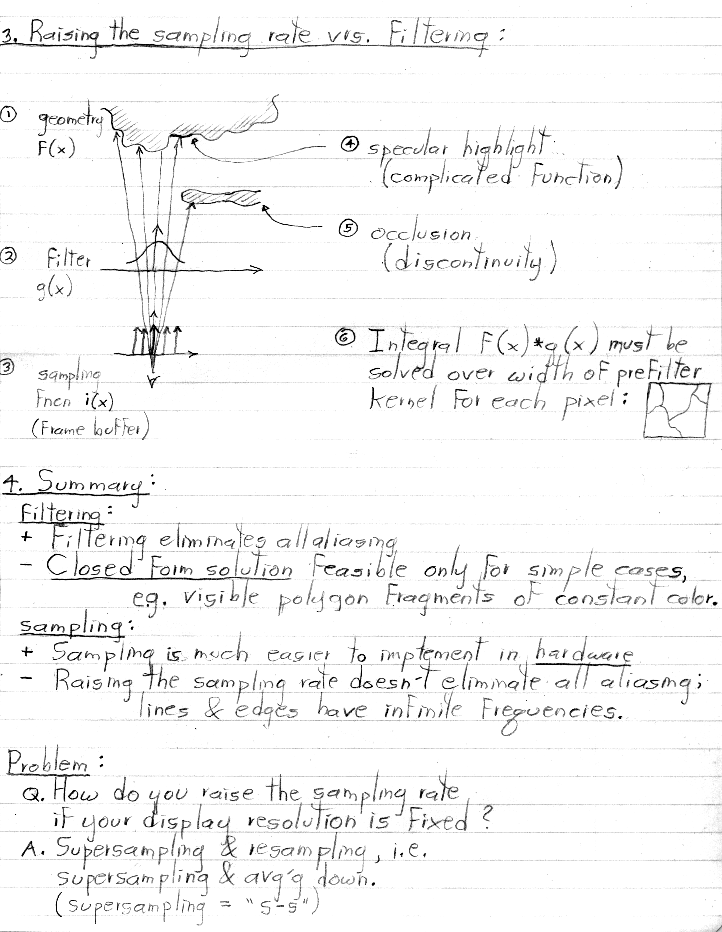 3. Raising the sampling rate vis. Filtering:
① geometry
F(x)
④ specular highlight
(complicated Function)
⑤ occlusion
(discontinuity)
② Filter
g(x)
③ sampling
Fncn i(x)
(Frame buffer)
⑥ Integral F(x)*g(x) must be
solved over width of prefilter
kernel For each pixel:
4. Summary:
Filtering:
+ Filtering eliminates all aliasing
- Closed Form solution Feasible only for simple cases,
e.g. visible polygon Fragments of constant color.
Sampling:
+ Sampling is much easier to implement in hardware
- Raising the sampling rate doesn't eliminate all aliasing;
lines & edges have infinite Frequencies.
Problem:
Q. How do you raise the sampling rate
if your display resolution is Fixed?
A. Supersampling & resampling, i.e.
supersampling & avg'g down.
(supersampling = "s-s")